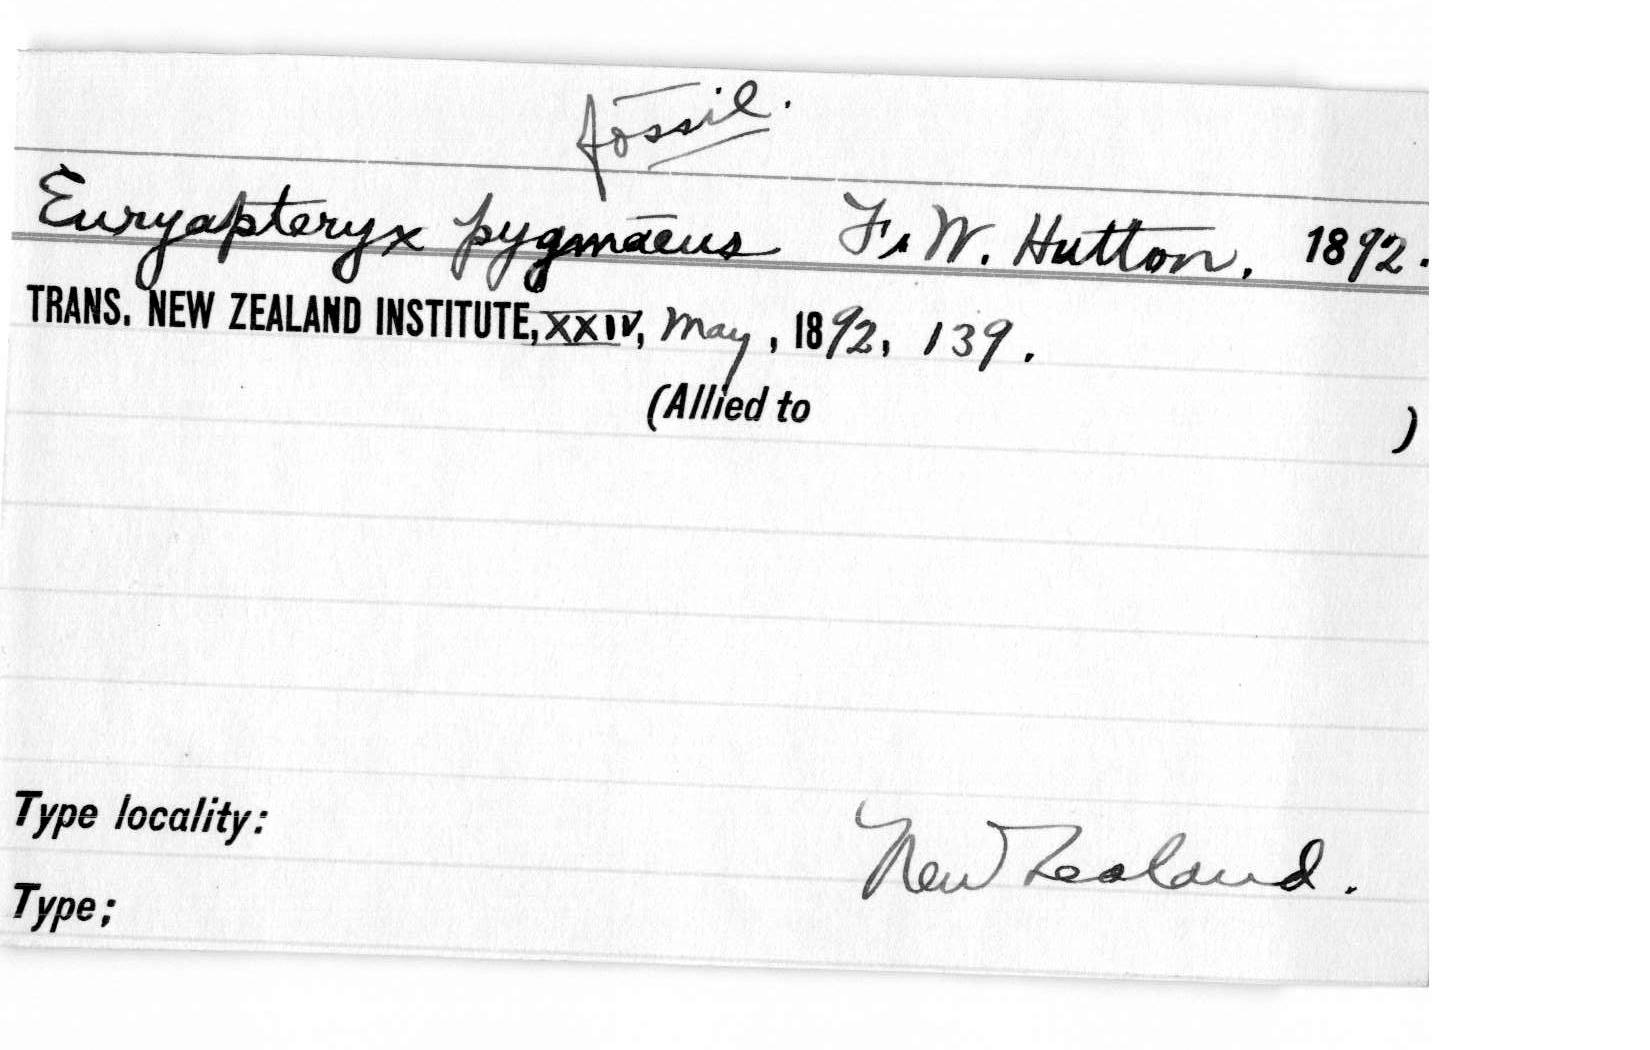 fossil.
Euryapteryx pygmaeus F. W. Hutton, 1892.
TRANS. NEW ZEALAND INSTITUTE, XXIV, May, 1892, 139.
(Allied to )
Type locality: New Zealand.
Type;